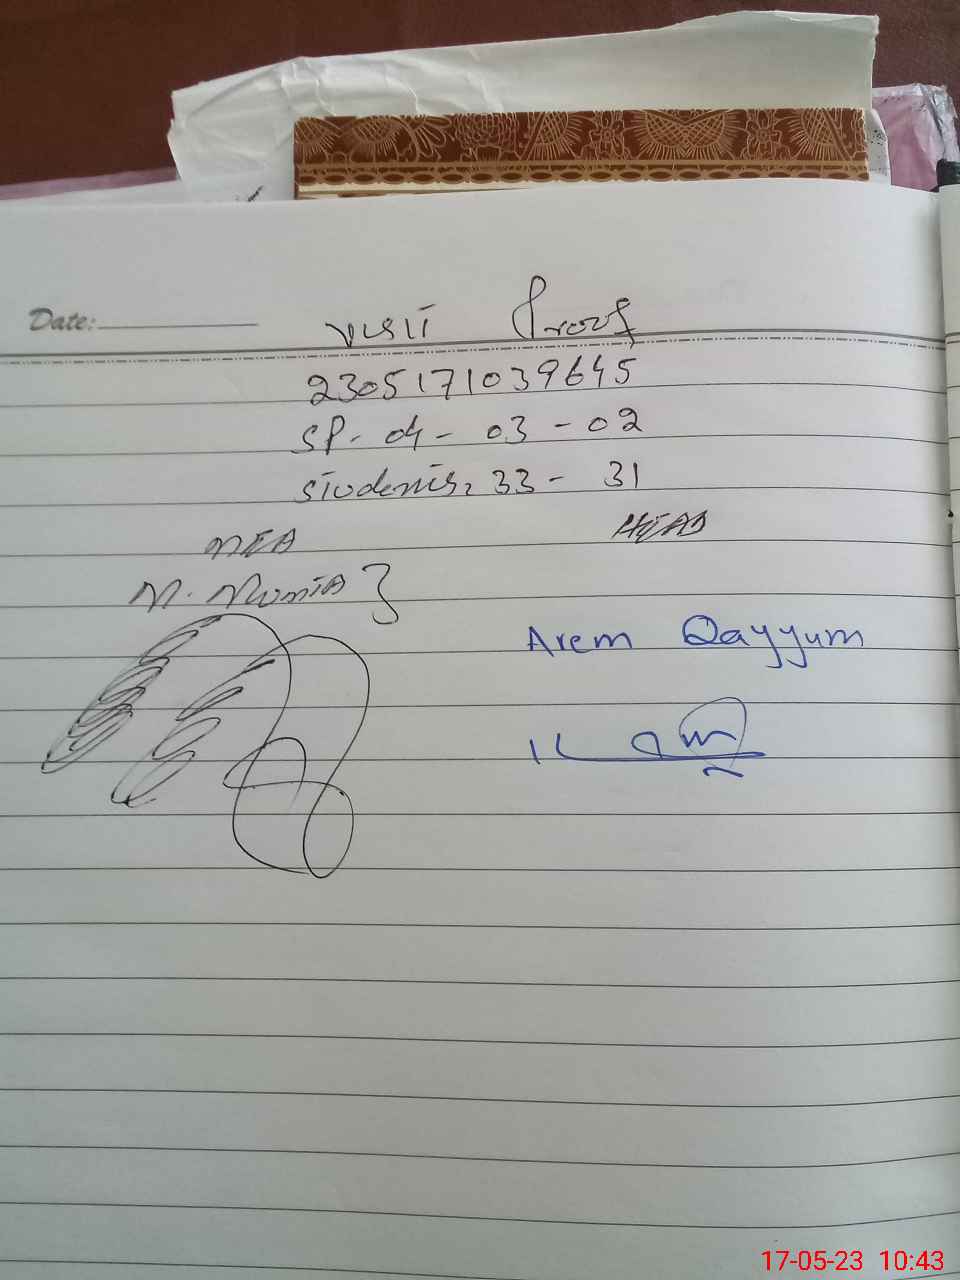 Date:
visit Proof
2305171039645
SP- 04- 03 - 02
students, 33 - 31
MEA
HEAD
M.
Arem Qayyum
17-05-23 10:43